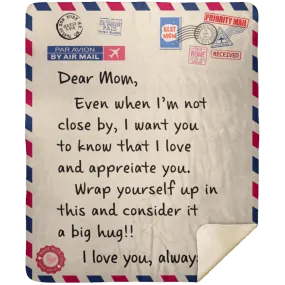 PRIORITY MAIL
BEST MOM
RECEIVED
PAR AVION
BY AIR MAIL
Dear Mom,
Even when I'm not
close by, I want you
to know that I love
and appreiate you.
Wrap yourself up in
this and consider it
a big hug!!
I love you, alway